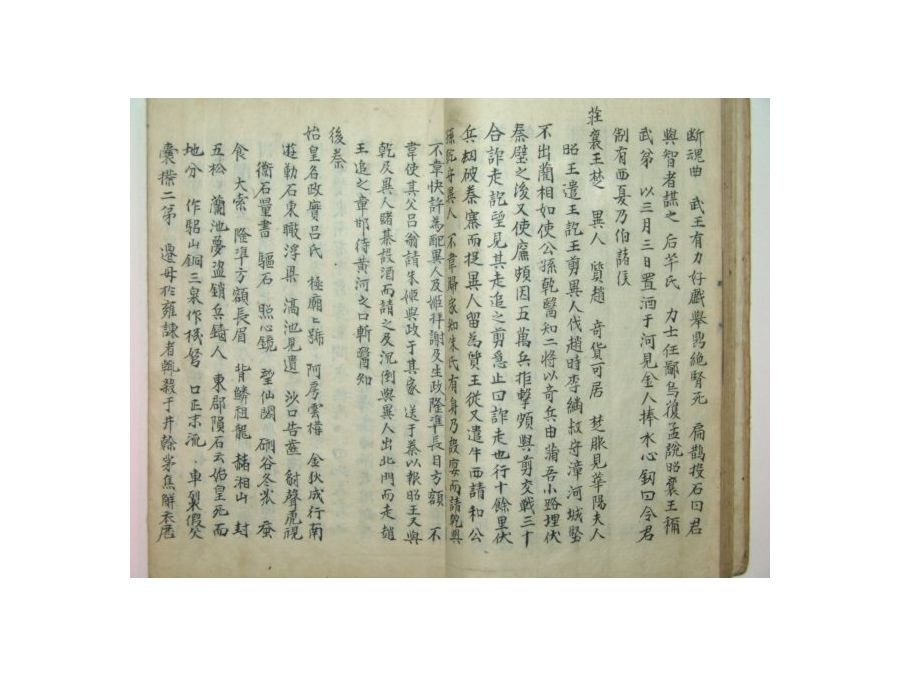 断魂曲 武王有力好戱擧鼎絶臏死 扁鵲投石曰君
與智者謀之 后羋氏 力士任鄙烏獲孟說昭襄王稱
武 以三月三日置酒于河見金人捧水心釰曰令君
制有西夏乃伯諸侯
莊襄王楚 異人 質趙 奇貨可居 楚服見華陽夫人
昭王遣王齕王剪異人伐趙時李継叔守漳河城堅
不出藺相如使公孫乾醫知二將以奇兵由蒲吾小路埋伏
秦壁之後又使廉頗因五萬兵拒擊頗與剪交戰三十
合詐走齕望見其走追之剪急止曰詐走也行十餘里伏
兵刼破秦寨而捉異人留爲質王從又遣牛西請和公
孫乾守異人 不韋歸家知朱氏有身乃設宴而請乾與
不韋快許爲配異人及姬拜謝及生政隆準長目方額 不
韋使其父呂翁請朱姬與政于其家 送于秦以報昭王又與
乾及異人賭棊設酒而請之及沉倒與異人出北門而走趙
王追之章邯待黃河之口斬醫知
後秦
始皇名政實呂氏 極廟上號 阿房雲樓 金狄成行南
遊勒石東瞰浮梁 滈池見遺 沙口告 豺聲虎視
衡石量書 驅石 照心鏡 望仙閣 硎谷冬 蚕
食 大索 隆準方額長眉 背鱗祖龍 赭湘山 封
五松 蘭池夢盜銷兵鑄人 東郡隕石云始皇死而
地分 作驪山銅三泉作機弩 口正末流 車製假父
囊撲二弟 遷母於雍諫者輒殺于井幹茅焦解衣